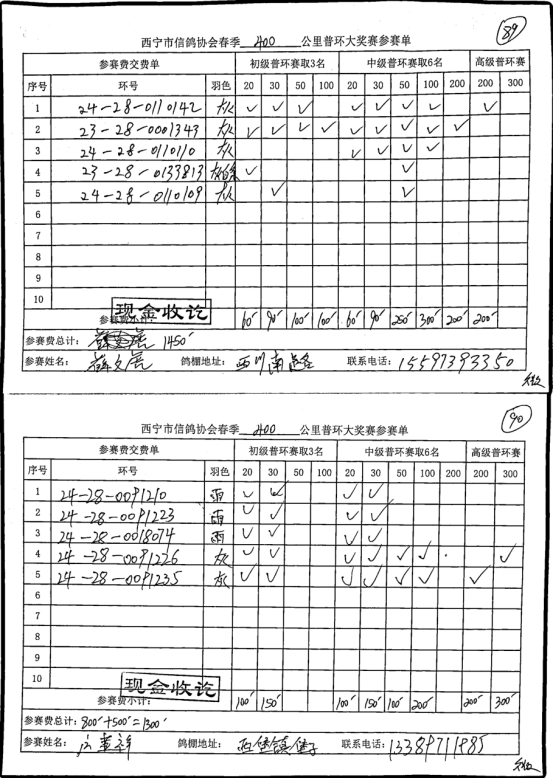 89
西宁市信鸽协会春季 400 公里普环大奖赛参赛单
参赛费交费单 初级普环赛取3名 中级普环赛取6名 高级普环赛
序号 环号 羽色 20 30 50 100 20 30 50 100 200 200 300
1 24-28-0110142 灰 ✓ ✓ ✓ ✓ ✓ ✓ ✓ ✓
2 23-28-0001343 灰 ✓ ✓ ✓ ✓ ✓ ✓ ✓ ✓ ✓
3 24-28-0110110 灰 ✓ ✓ ✓ ✓
4 23-28-0133813 ✓ ✓
5 24-28-0110109 灰 ✓ ✓
6
7
8
9
10
现金收讫
参赛费小计: 60 90 100 100 60 90 250 300 200 200
参赛费总计: 1450
参赛姓名: 薛文展 鸽棚地址: 西川南路 联系电话: 15597393350
90
西宁市信鸽协会春季 400 公里普环大奖赛参赛单
参赛费交费单 初级普环赛取3名 中级普环赛取6名 高级普环赛
序号 环号 羽色 20 30 50 100 20 30 50 100 200 200 300
1 24-28-0091210 雨 ✓ ✓ ✓ ✓
2 24-28-0091223 雨 ✓ ✓ ✓ ✓
3 24-28-0018074 雨 ✓ ✓ ✓ ✓
4 24-28-0091226 灰 ✓ ✓ ✓ ✓ ✓ ✓ ✓
5 24-28-0091235 灰 ✓ ✓ ✓ ✓ ✓ ✓ ✓
6
7
8
9
10
现金收讫
参赛费小计: 100 150 100 150 100 200 200 300
参赛费总计: 800+500=1300
参赛姓名: 鸽棚地址: 联系电话: 13389711985